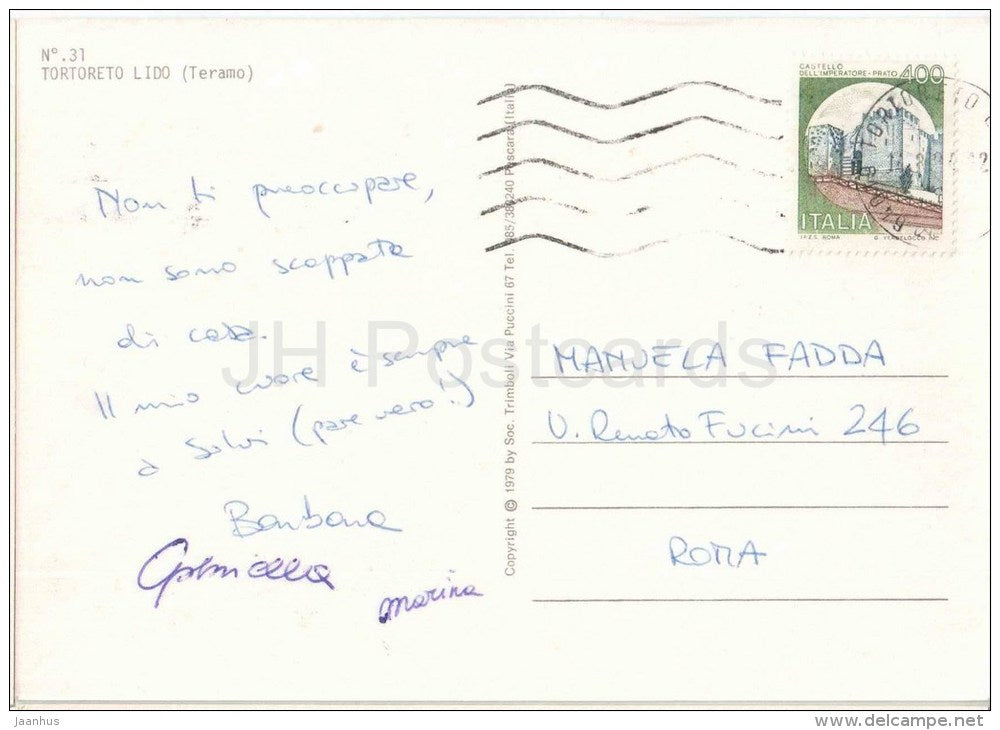 N°.31
TORTORETO LIDO (Teramo)
Non ti preoccupare,
non sono scappata
di casa.
Il mio cuore è sempre
a Salvi (pare vero!!)
Barbara
Gabriella
marina
Copyright © 1979 by Soc. Trimboli Via Puccini 67 Tel. 085/389240 Pescara (Italia)
CASTELLO
DELL'IMPERATORE-PRATO
400
ITALIA
I.P.Z.S. ROMA
MANUELA FADDA
V. Renato Fucini 246
ROMA
JH Postcards
jhaannee
delcampe.net